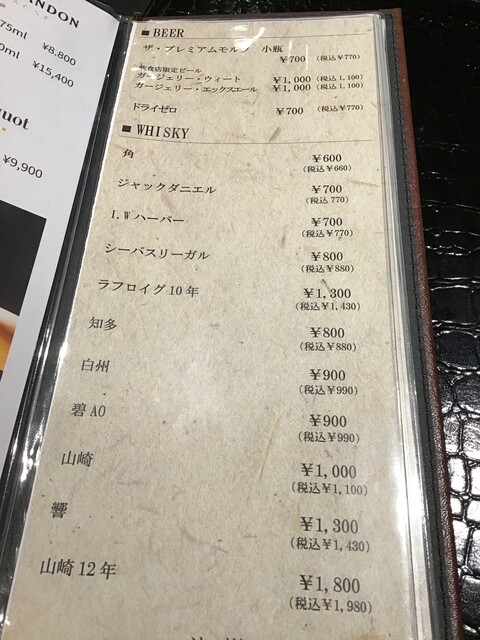 ANDON
75ml ¥8,800
0ml ¥15,400
uot
¥9,900
■ BEER
ザ・プレミアムモルツ 小瓶
¥700 (税込¥770)
飲食店限定ビール
ガージェリー・ウィート ¥1,000 (税込1,100)
ガージェリー・エックスエール ¥1,000 (税込1,100)
ドライゼロ ¥700 (税込¥770)
■ WHISKY
角 ¥600
(税込¥660)
ジャックダニエル ¥700
(税込 770)
I.W ハーパー ¥700
(税込¥770)
シーバスリーガル ¥800
(税込¥880)
ラフロイグ10年 ¥1,300
(税込¥1,430)
知多 ¥800
(税込¥880)
白州 ¥900
(税込¥990)
碧AO ¥900
(税込¥990)
山崎 ¥1,000
(税込¥1,100)
響 ¥1,300
(税込¥1,430)
山崎12年 ¥1,800
(税込¥1,980)